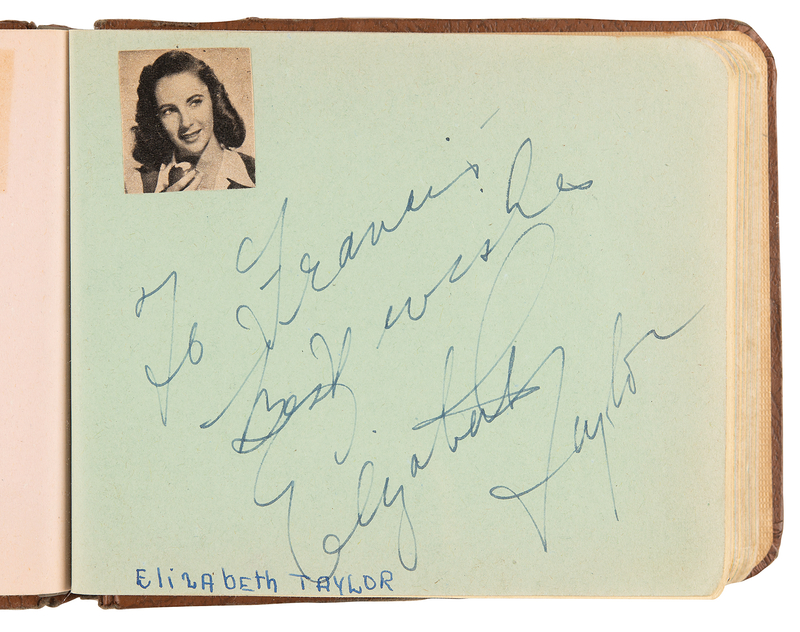 To Francis
Best wishes
Elizabeth
Taylor
ElizAbEth TAYLOR